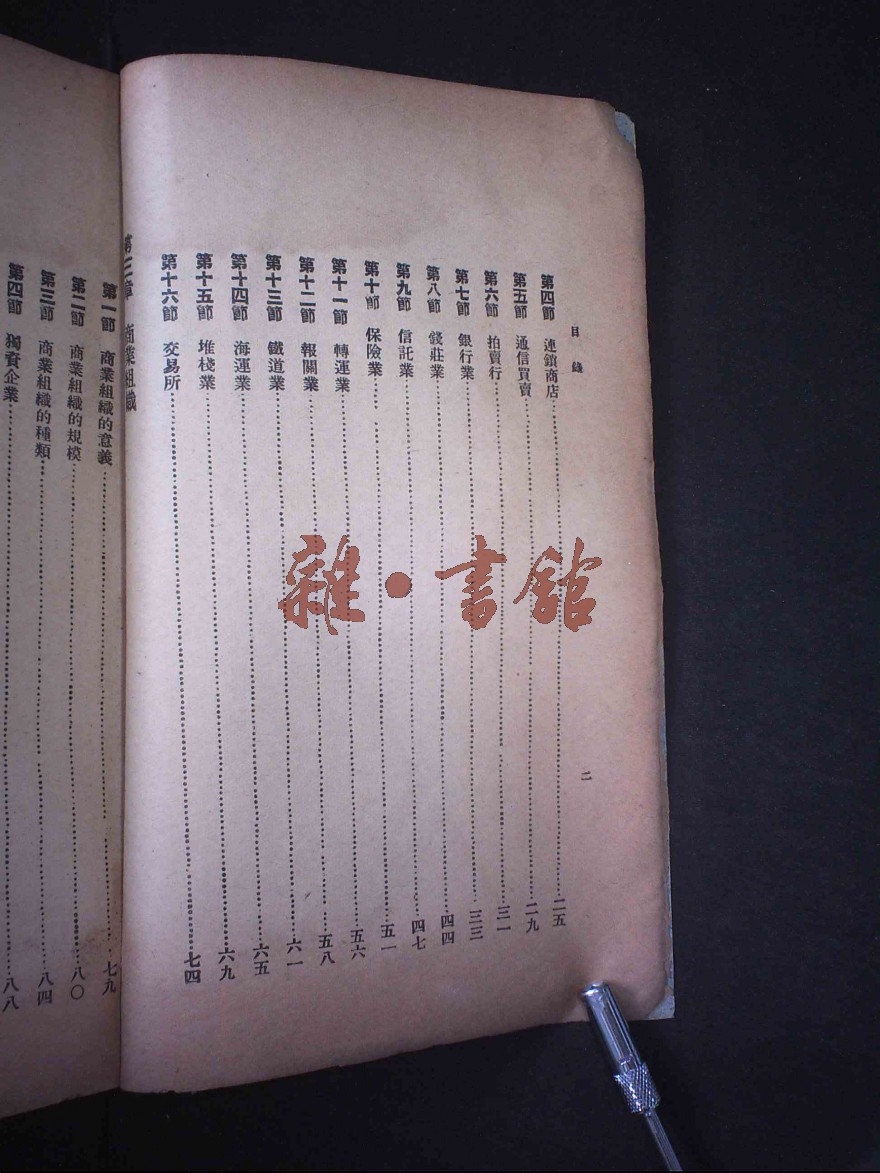 目錄
二
第四節 連鎖商店……二五
第五節 通信買賣……二九
第六節 拍賣行……三一
第七節 銀行業……三三
第八節 錢莊業……四四
第九節 信託業……四七
第十節 保險業……五一
第十一節 轉運業……五六
第十二節 報關業……五八
第十三節 鐵道業……六一
第十四節 海運業……六五
第十五節 堆棧業……六九
第十六節 交易所……七四
第三章 商業組織
第一節 商業組織的意義……七九
第二節 商業組織的規模……八〇
第三節 商業組織的種類……八四
第四節 獨資企業……八八
雜·書館